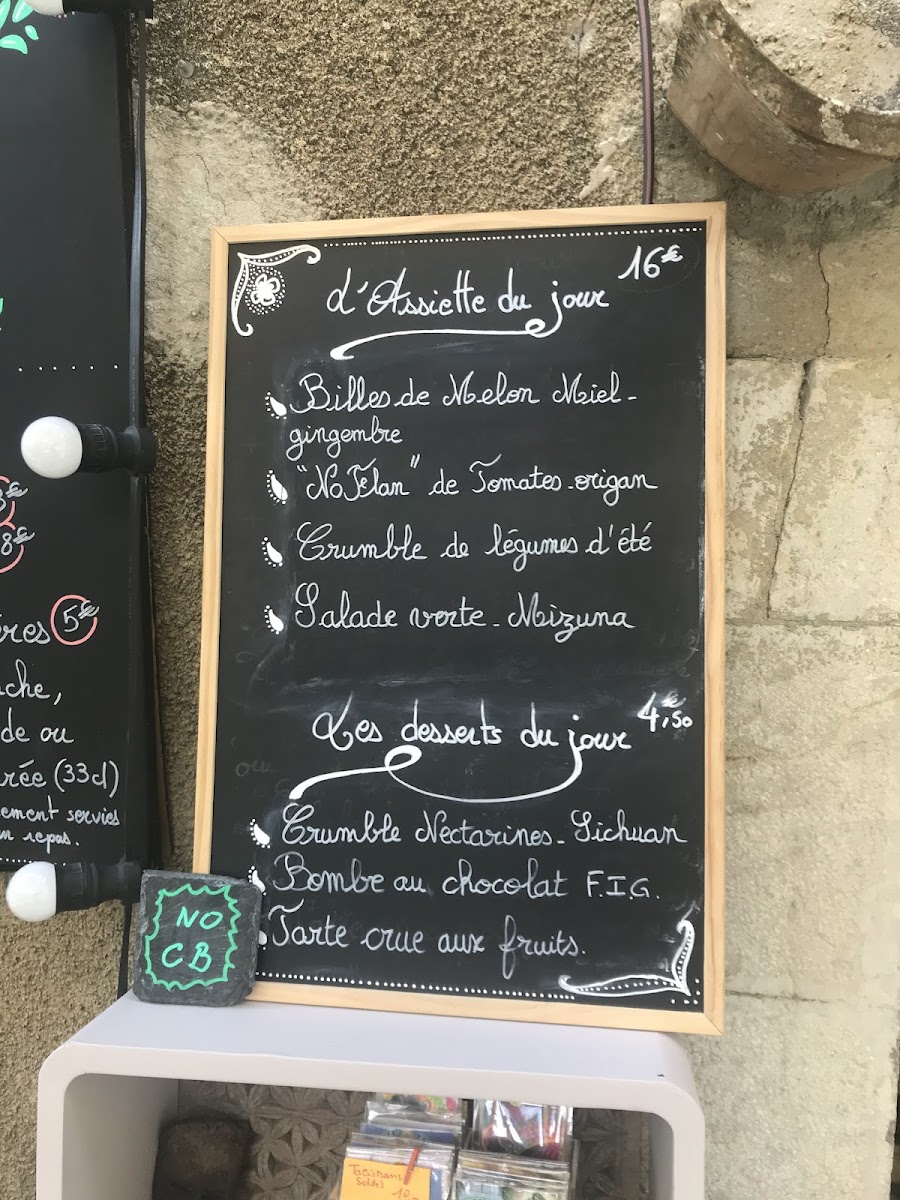 d'Assiette du jour 16€
Billes de Melon Miel-
gingembre
"NoFlan" de Tomates-origan
Crumble de légumes d'été
Salade verte - Mizuna
Les desserts du jour 4,50€
Crumble Nectarines - Sichuan
Bombe au chocolat F.I.G.
Tarte crue aux fruits.
NO
CB
8€
5€
de ou
(33cl)
services
repas.